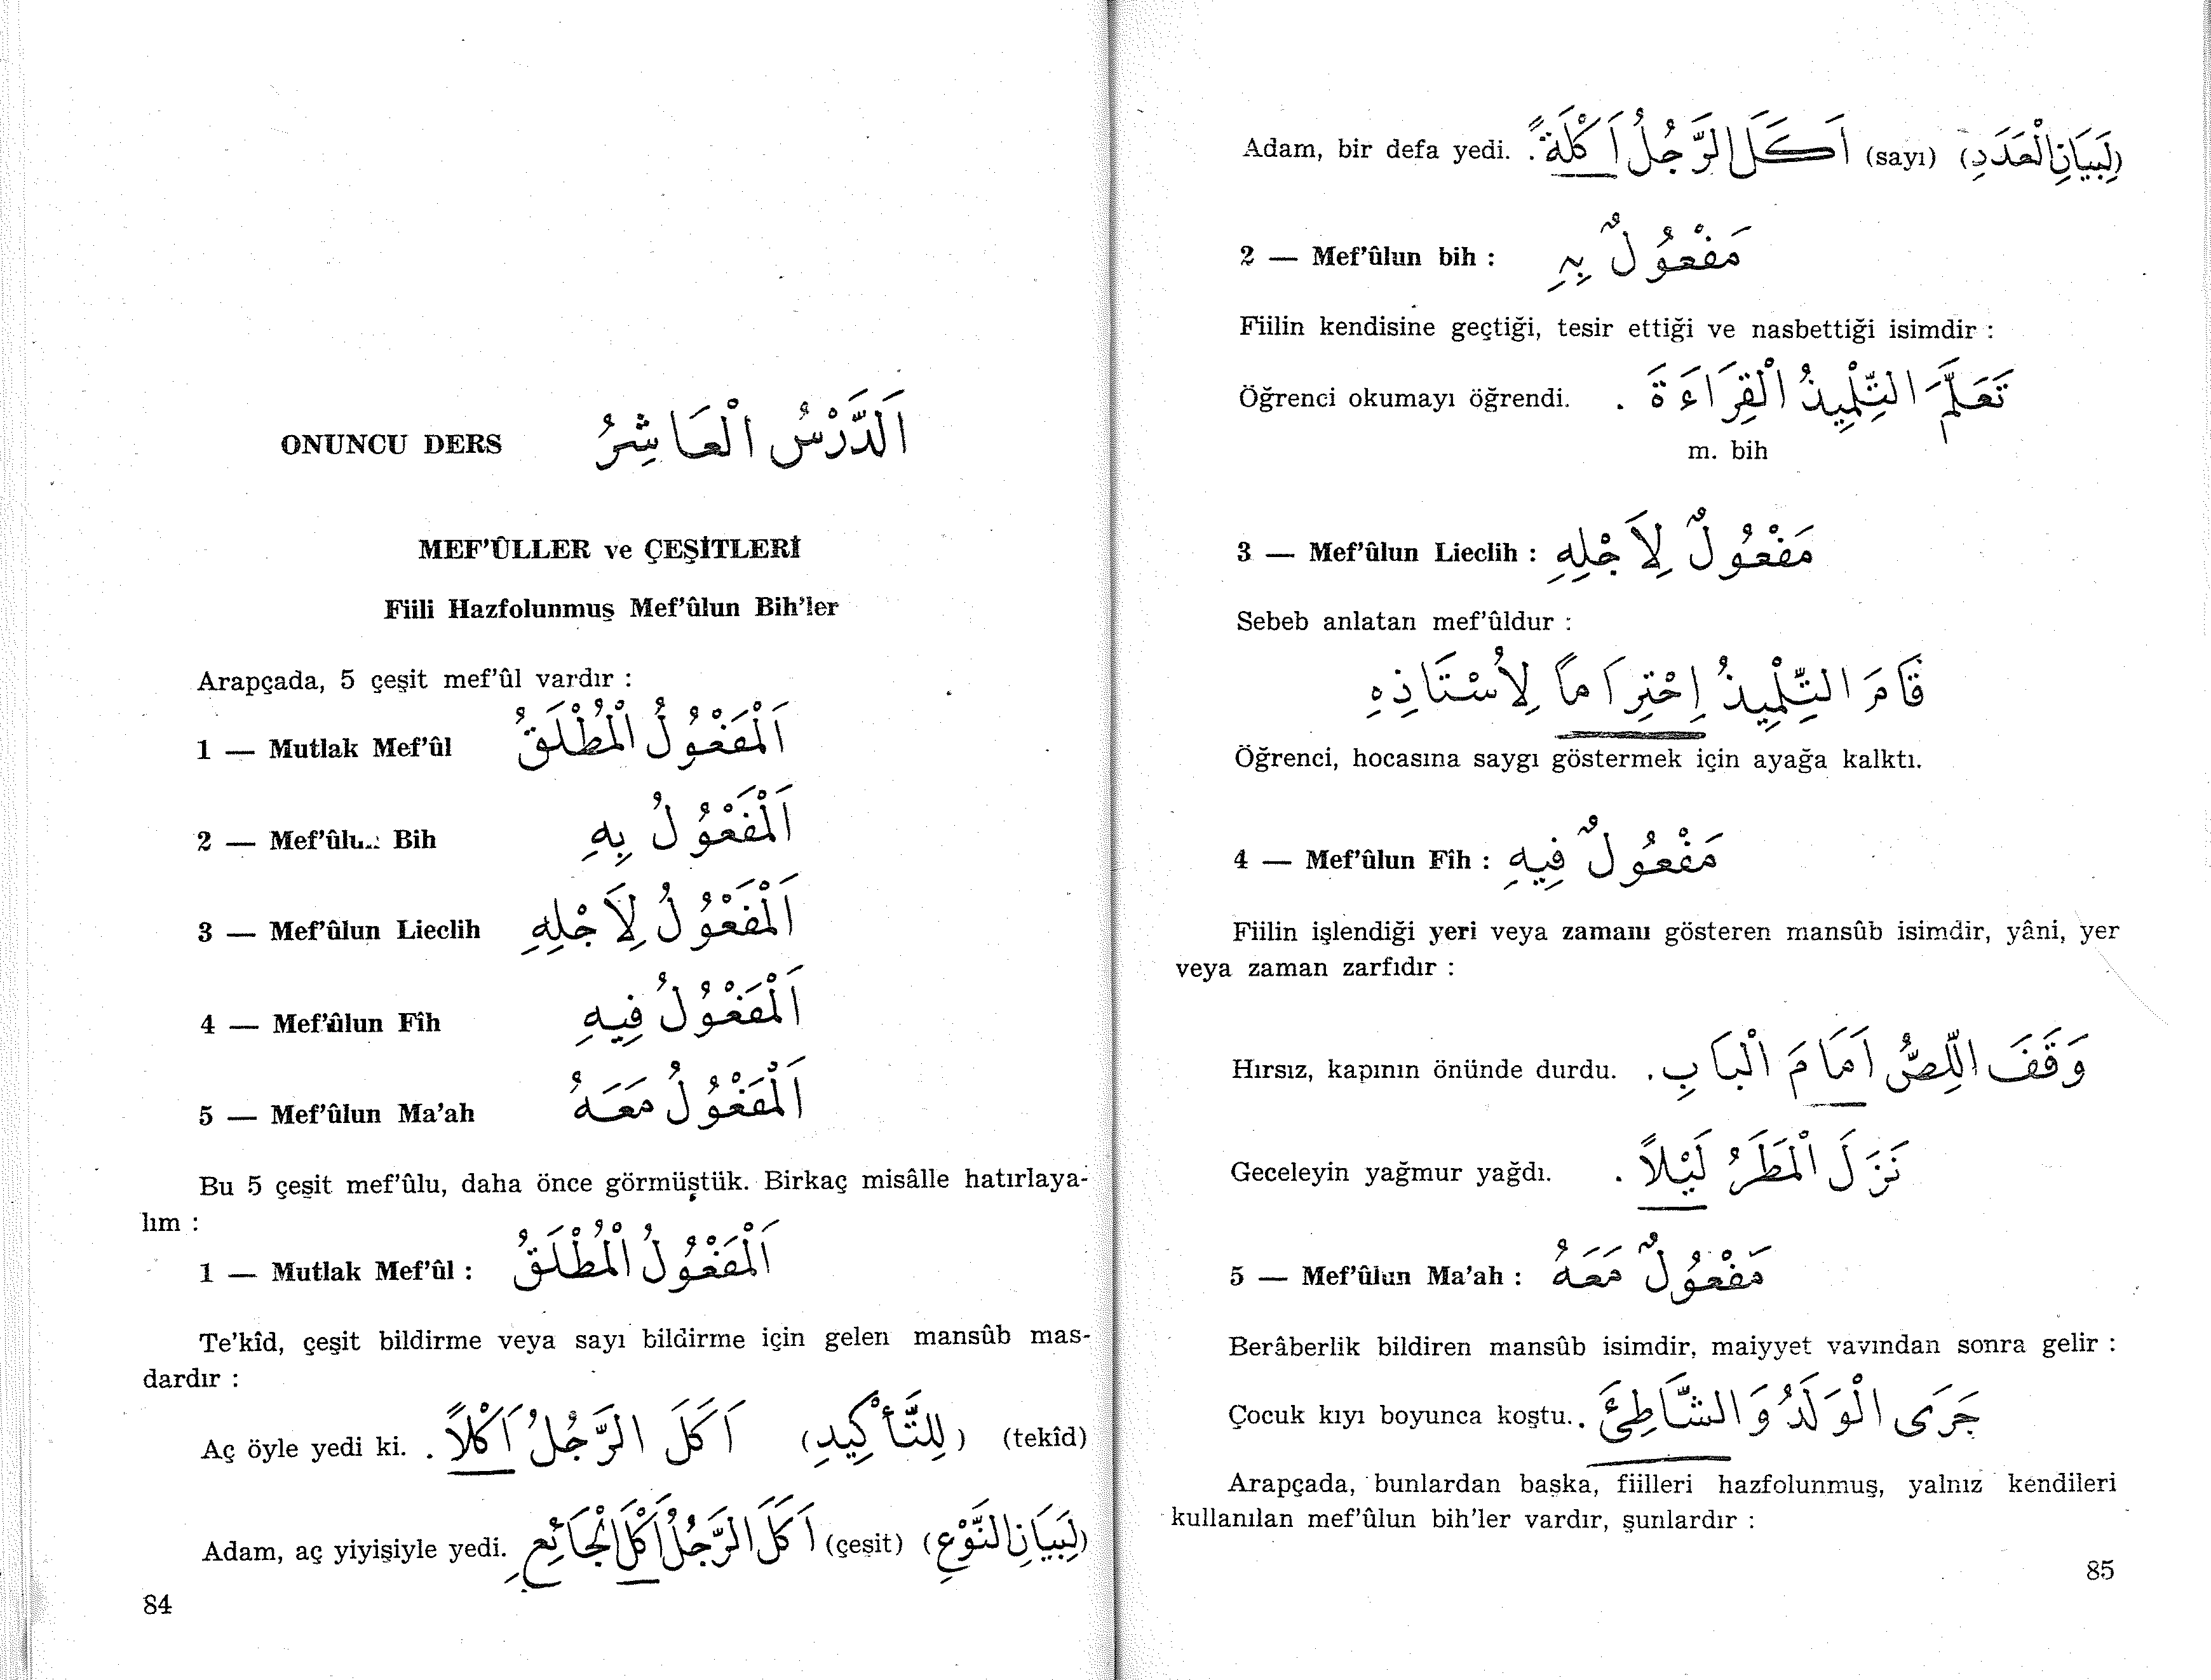 ONUNCU DERS اَلدَّرْسُ الْعَاشِرُ
MEF'ÛLLER ve ÇEŞİTLERİ
Fiili Hazfolunmuş Mef'ûlun Bih'ler
Arapçada, 5 çeşit mef'ûl vardır :
1 — Mutlak Mef'ûl اَلْمَفْعُولُ الْمُطْلَقُ
2 — Mef'ûlu.. Bih اَلْمَفْعُولُ بِهِ
3 — Mef'ûlun Lieclih اَلْمَفْعُولُ لِاَجْلِهِ
4 — Mef'ûlun Fîh اَلْمَفْعُولُ فِيهِ
5 — Mef'ûlun Ma'ah اَلْمَفْعُولُ مَعَهُ
Bu 5 çeşit mef'ûlu, daha önce görmüştük. Birkaç misâlle hatırlaya-
lım :
1 — Mutlak Mef'ûl : اَلْمَفْعُولُ الْمُطْلَقُ
Te'kîd, çeşit bildirme veya sayı bildirme için gelen mansûb mas-
dardır :
Aç öyle yedi ki. اَكَلَ الرَّجُلُ اَكْلاً . (لِلتَّأْكِيدِ) (tekîd)
Adam, aç yiyişiyle yedi. اَكَلَ الرَّجُلُ اَكْلَ الْجَائِعِ (çeşit) (لِبَيَانِ النَّوْعِ)
84
Adam, bir defa yedi. اَكَلَ الرَّجُلُ اَكْلَةً . (sayı) (لِبَيَانِ الْعَدَدِ)
2 — Mef'ûlun bih : مَفْعُولٌ بِهِ
Fiilin kendisine geçtiği, tesir ettiği ve nasbettiği isimdir :
Öğrenci okumayı öğrendi. تَعَلَّمَ التِّلْمِيذُ الْقِرَاءَةَ .
m. bih
3 — Mef'ûlun Lieclih : مَفْعُولٌ لِاَجْلِهِ
Sebeb anlatan mef'ûldur :
قَامَ التِّلْمِيذُ اِحْتِرَامًا لِأُسْتَاذِهِ
Öğrenci, hocasına saygı göstermek için ayağa kalktı.
4 — Mef'ûlun Fîh : مَفْعُولٌ فِيهِ
Fiilin işlendiği yeri veya zamanı gösteren mansûb isimdir, yâni, yer
veya zaman zarfıdır :
Hırsız, kapının önünde durdu. وَقَفَ اللِّصُّ اَمَامَ الْبَابِ .
Geceleyin yağmur yağdı. نَزَلَ الْمَطَرُ لَيْلاً .
5 — Mef'ûlun Ma'ah : مَفْعُولٌ مَعَهُ
Berâberlik bildiren mansûb isimdir, maiyyet vavından sonra gelir :
Çocuk kıyı boyunca koştu. جَرَى الْوَلَدُ وَالشَّاطِئَ .
Arapçada, bunlardan başka, fiilleri hazfolunmuş, yalnız kendileri
kullanılan mef'ûlun bih'ler vardır, şunlardır :
85